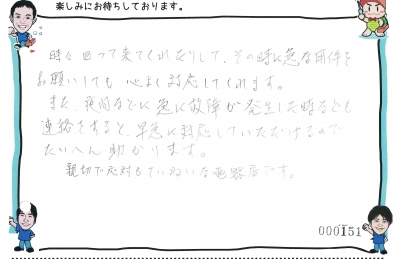 楽しみにお待ちしております。
時々回って来てくれたりして、その時に急な用件を
お願いしても心よく対応してくれます。
また、夜間などに急に故障が発生した時なども
連絡をすると、早急に対応していただけるので
たいへん助かります。
親切で応対もていねいな電器店です。
000151